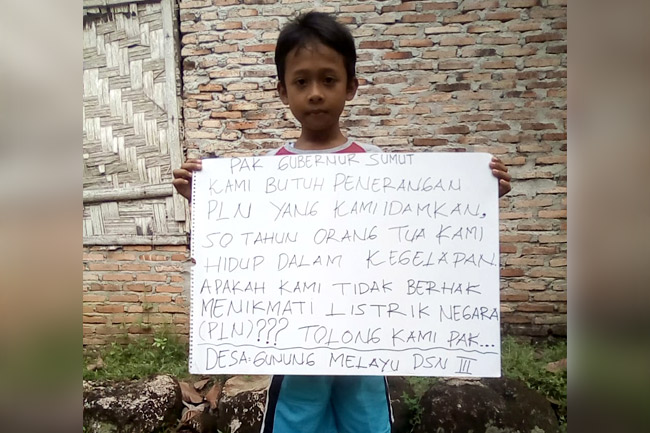 PAK GUBERNUR SUMUT
KAMI BUTUH PENERANGAN
PLN YANG KAMI IDAMKAN.
50 TAHUN ORANG TUA KAMI
HIDUP DALAM KEGELAPAN.
APAKAH KAMI TIDAK BERHAK
MENIKMATI LISTRIK NEGARA
(PLN)??? TOLONG KAMI PAK...
DESA: GUNUNG MELAYU DSN III